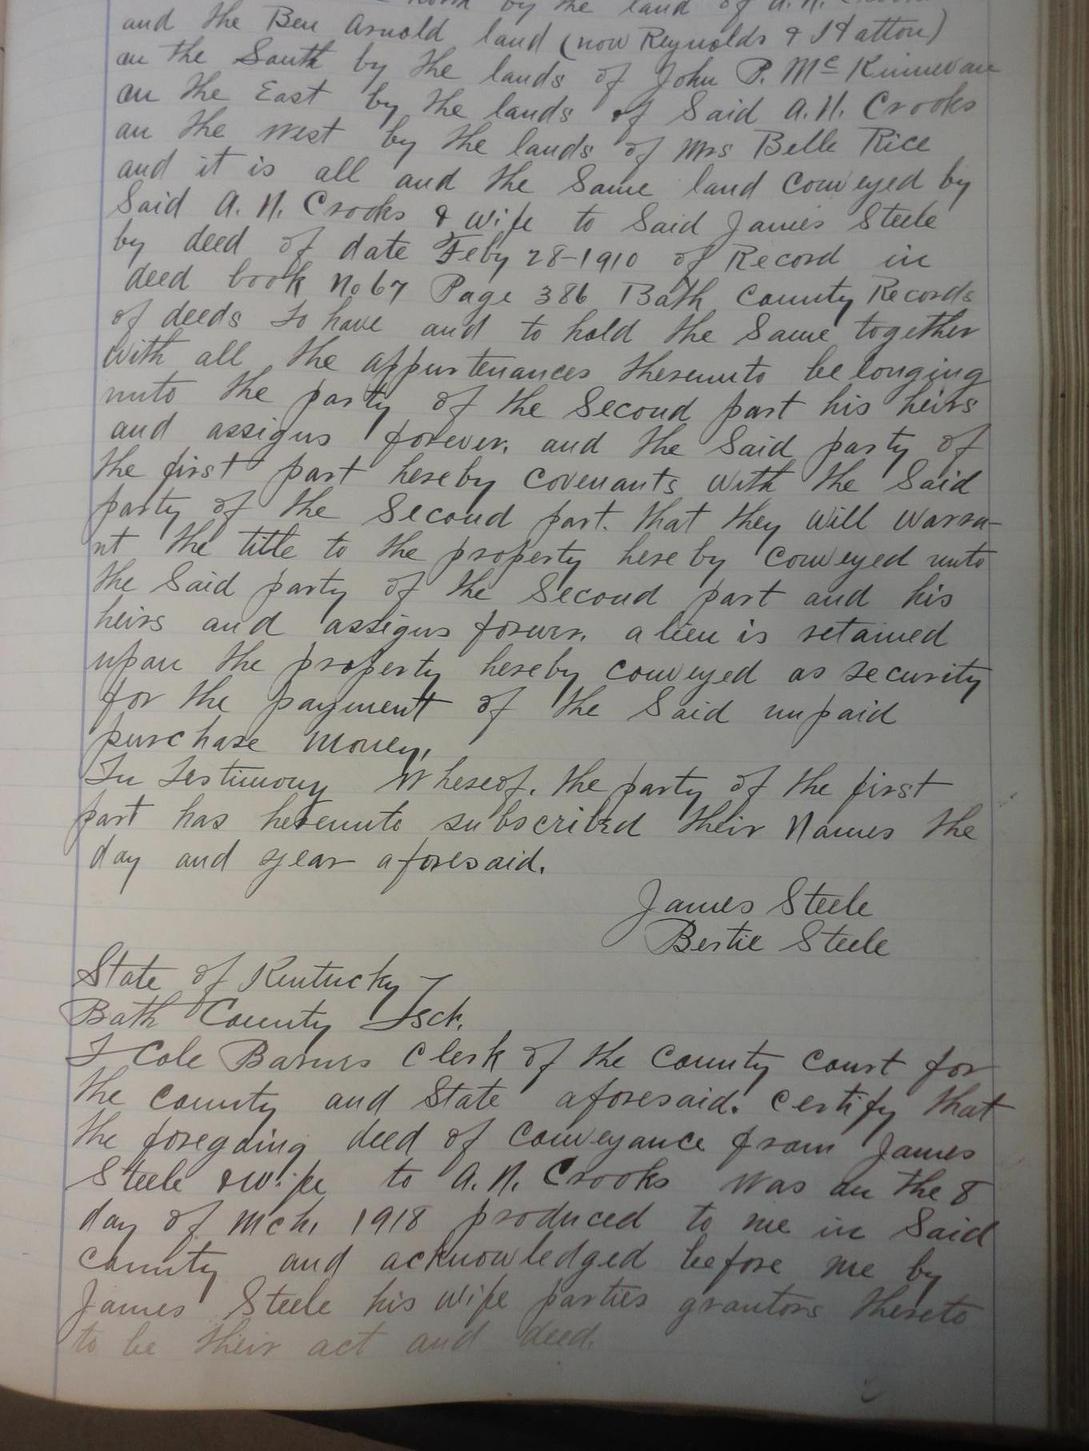 by the land of A. N. Crooks
and the Ben Arnold land (now Reynolds & Hatton)
on the South by the lands of John P. Mc Kinnevan
on the East by the lands of Said A. N. Crooks
on the West by the lands of Mrs Belle Rice
and it is all and the Same land Conveyed by
Said A. N. Crooks & wife to Said James Steele
by deed of date Feby 28-1910 of Record in
deed book No 67 Page 386 Bath County Records
of deeds To have and to hold the Same together
with all the appurtenances thereunto belonging
unto the party of the Second part his heirs
and assigns forever. and the Said party of
the first part hereby covenants with the Said
party of the Second part. that they will warra-
nt the title to the property hereby conveyed unto
the Said party of the Second part and his
heirs and assigns forever. a lien is retained
upon the property hereby conveyed as security
for the payment of the Said unpaid
purchase money.
In Testimony Whereof. the party of the first
part has hereunto subscribed their Names the
day and year aforesaid.
James Steele
Bertie Steele
State of Kentucky
Bath County Sct.
I Cole Barnes Clerk of the County Court for
the County and State aforesaid. Certify that
the foregoing deed of conveyance from James
Steele & wife to A. N. Crooks was on the 8
day of Mch. 1918 produced to me in Said
County and acknowledged before me by
James Steele his wife parties grantors thereto
to be their act and deed.